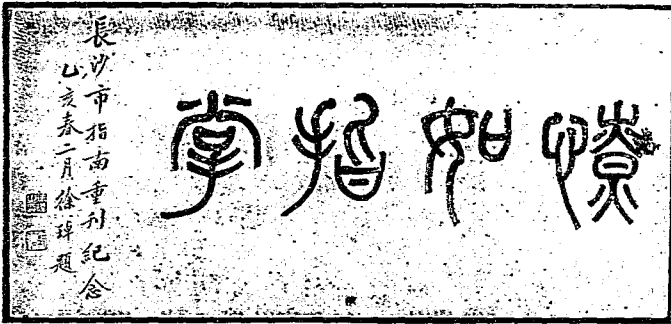 憭如指掌
長沙市指南重刊紀念
乙亥春二月徐琿題